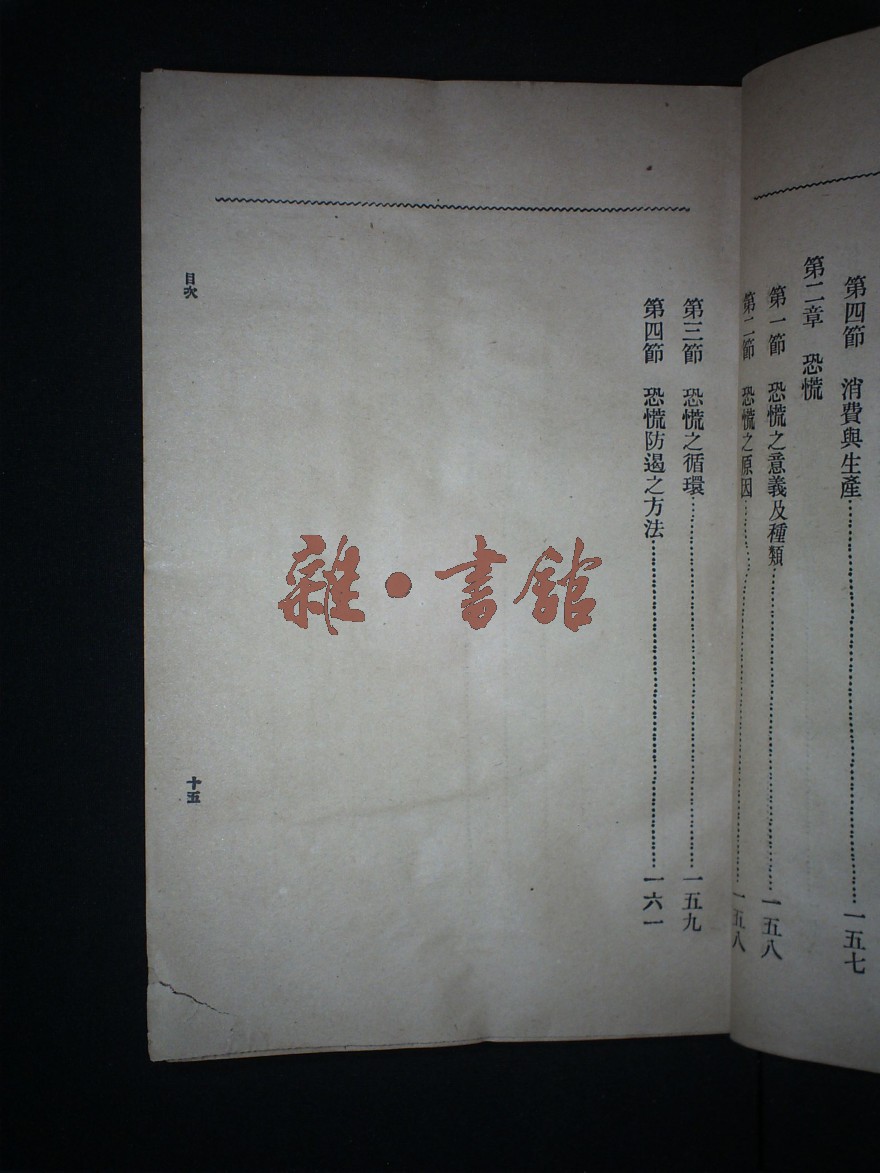 第四節　消費與生產…………一五七
第二章　恐慌
第一節　恐慌之意義及種類…………一五八
第二節　恐慌之原因…………一五八
第三節　恐慌之循環…………一五九
第四節　恐慌防遏之方法…………一六一
目次
十五
雜·書館